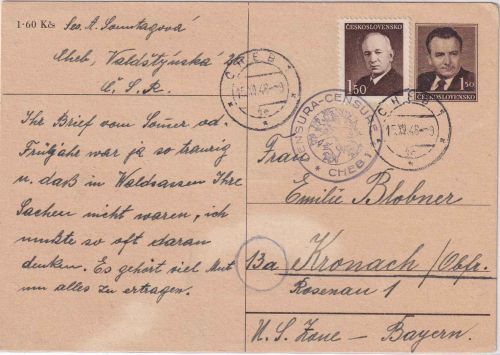 1·60 Kčs
Ses. A. Sonntagová
Cheb, Valdštýnská
Č. S. R.
Ihr Brief vom Somer od.
Frühjahr war ja so traurig
u. daß in Waldsassen Ihre
Sachen nicht waren, ich
mußte so oft daran
denken. Es gehört viel Mut
um alles zu ertragen.
ČESKOSLOVENSKO
1.50
ČESKOSLOVENSKO
1.50
CHEB 1
15.XI.48
1c
CENSURA-CENSURE
CHEB 1
CHEB 1
15.XI.48
1c
Frau
Emilie Blobner
13a Kronach/Obfr.
Rosenau 1
U. S. Zone - Bayern.